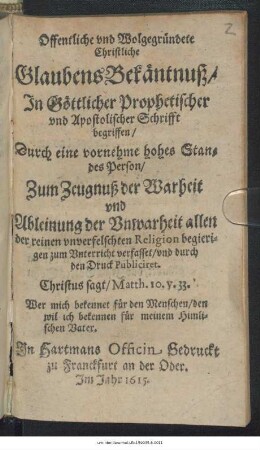 2
Offentliche vnd Wolgegründete
Christliche
Glaubens Bekäntnuß/
In Göttlicher Prophetischer
vnd Apostolischer Schrifft
begriffen/
Durch eine vornehme hohes Stan-
des Person/
Zum Zeugnuß der Warheit
vnd
Ableinung der Vnwarheit allen
der reinen vnverfelschten Religion begieri-
gen zum Vnterricht verfasset/vnd durch
den Druck Publiciret.
Christus sagt/ Matth. 10. v. 33.
Wer mich bekennet für den Menschen/den
wil ich bekennen für meinem Himli-
schen Vater.
In Hartmans Officin Gedruckt
zu Franckfurt an der Oder.
Im Jahr 1615.